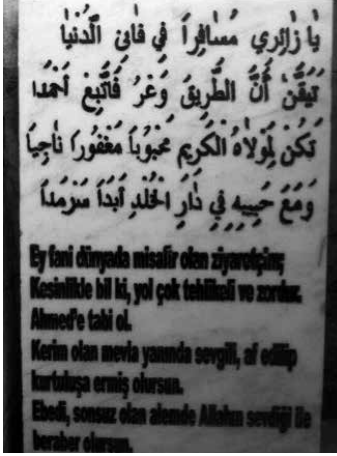 يَا زَائِرِي مُسَافِرًا فِي فَانِي الدُّنْيَا
تَيَقَّنْ أَنَّ الطَّرِيقَ وَعْرُ فَاتَّبِعْ أَحْمَدَا
تَكُنْ لِمَوْلَاهُ الْكَرِيمِ مَحْبُوبًا مَغْفُورًا نَاجِيًا
وَمَعَ حَبِيبِهِ فِي دَارِ الْخُلْدِ أَبَدًا سَرْمَدًا
Ey fani dünyada misafir olan ziyaretçim;
Kesinlikle bil ki, yol çok tehlikeli ve zordur.
Ahmed'e tabi ol.
Kerim olan mevla yanında sevgili, af edilip
kurtuluşa ermiş olursun.
Ebedi, sonsuz olan alemde Allahın sevdiği ile
beraber olursun.